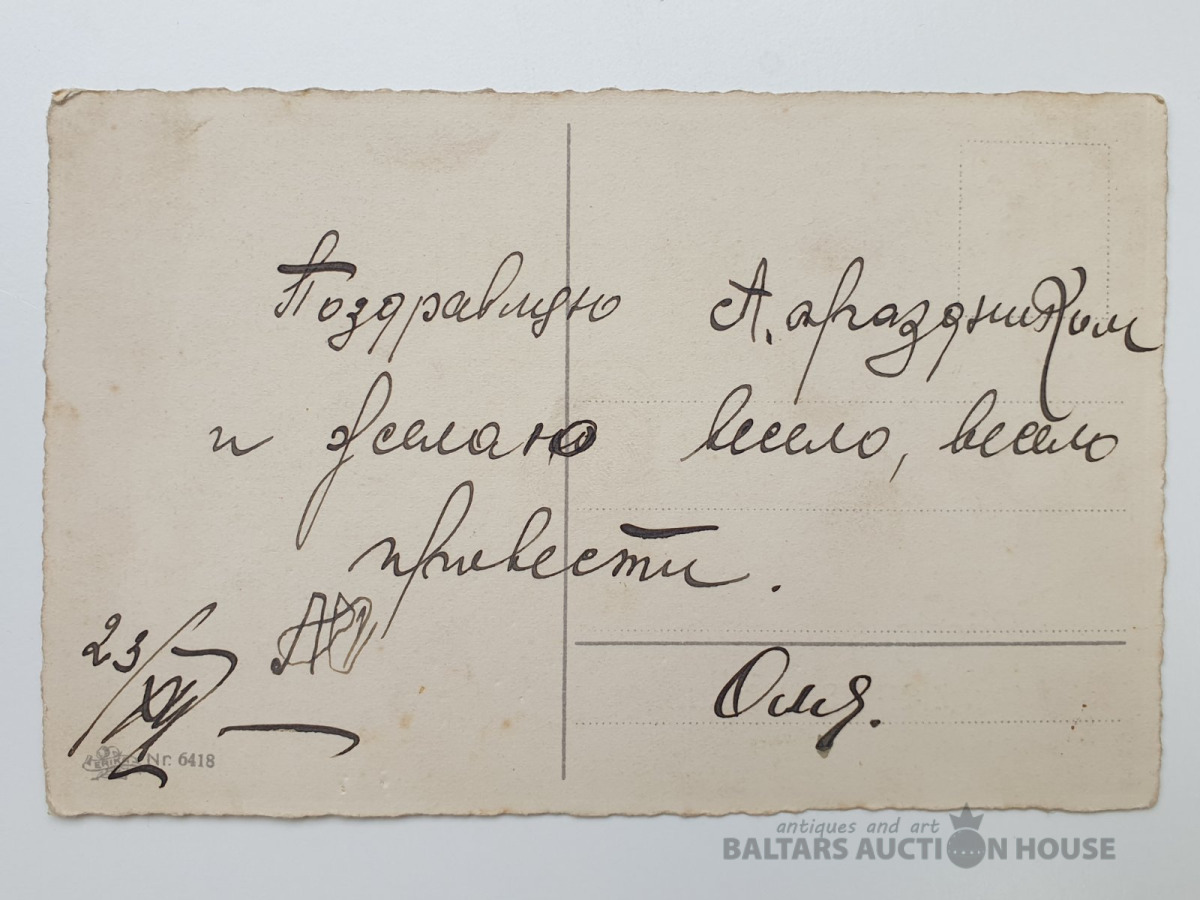 Поздравляю с праздником
и желаю весело, весело
провести.
23/XII
Оля.
Nr. 6418
antiques and art
BALTARS AUCTION HOUSE